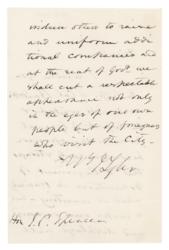 induce others to raise
and uniform addi
tional companies and
at the seat of Govt. we
shall cut a respectable
appearance not only
in the eyes of our own
people but of foreigners
who visit the City.
J. Tyler
Hon J. C. Spencer